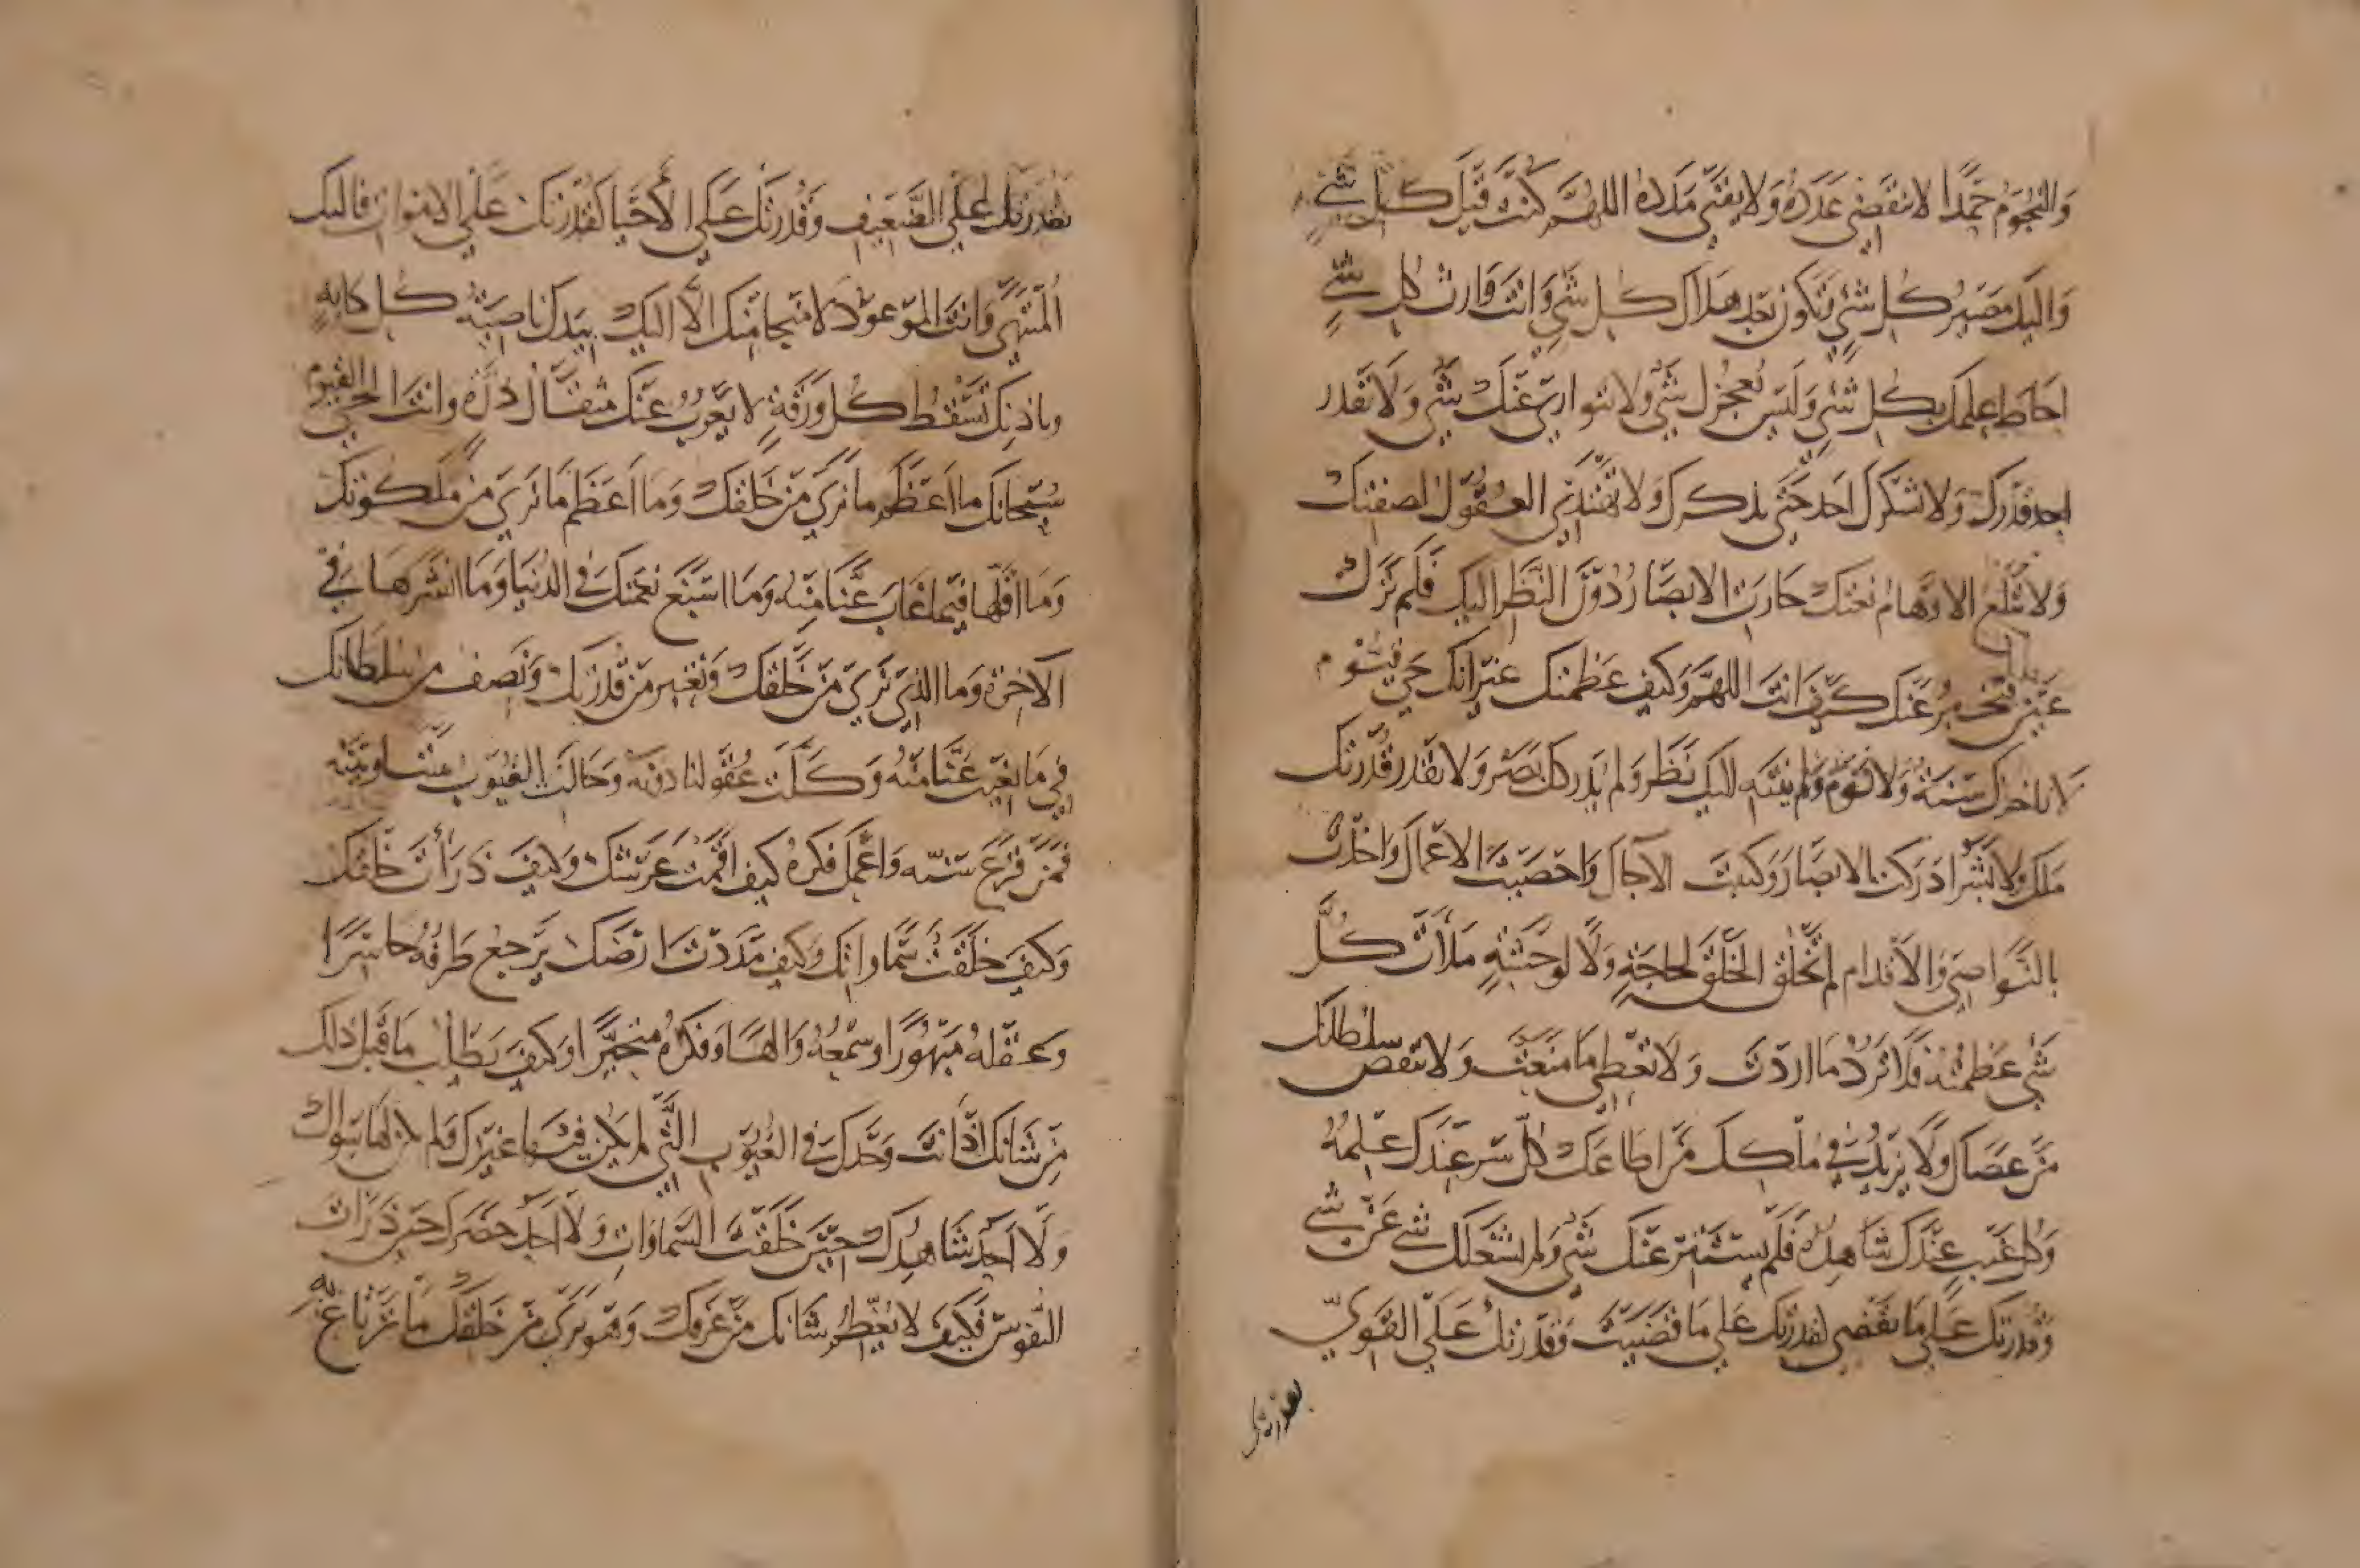 والنجوم حمدا لا ينقضي عدده ولا يفنى مدده اللهم كنت قبل كل شي
واليك مصير كل شي وتكون بعد هلاك كل شي وانت وارث كل شي
احاط علمك بكل شي وليس يعجزك شي ولا يتوارى عنك شي ولا يقدر
احد قدرك ولا يشكرك احد حتى يذكرك ولا تهتدي العقول لصفتك
ولا تبلغ الاوهام نعتك حارت الابصار دون النظر اليك فلم ترك
عين فتخبر عنك كيف انت اللهم وكيف عظمتك غير انك حي قيوم
لا تاخذك سنة ولا نوم ولم ينته اليك نظر ولم يدركك بصر ولا يقدر قدرتك
ملك ولا بشر ادركت الابصار وكتبت الآجال واحصيت الاعمال واخذت
بالنواصي والاقدام لم تخلق الخلق لحاجة ولا لوحشة ملأت كل
شي عظمتك فلا ترد ما اردت ولا تعطي ما منعت ولا ينقص سلطانك
من عصاك ولا يزيد في ملكك من اطاعك كل سر عندك علمه
وكل غيب عندك شاهده فلم يستتر عنك شي ولم يشغلك شي عن شي
وقدرتك على ما تقضي لقدرتك على ما قضيت وقدرتك على القوي
كقدرتك
كقدرتك على الضعيف وقدرتك على الأحيا كقدرتك على الاموات فاليك
المنتهى وانت الموعود لا منجا منك الا اليك بيدك ناصية كل دابة
وباذنك تسقط كل ورقة لا يعزب عنك مثقال ذرة وانت الحي القيوم
سبحانك ما اعظم ما نرى من خلقك وما اعظم ما نرى من ملكوتك
وما اقلها فيما غاب عنا منه وما اسبغ نعمتك في الدنيا وما
في
الآخرة وما الذي نرى من خلقك ونعبر من قدرتك ونصف من سلطانك
في ما يغيب عنا منه وكلت عقولنا دونه وحالت الغيوب بيننا وبينه
فمن فرغ سنه واعمل فكره كيف اقمت عرشك وكيف ذرأت خلقك
وكيف خلقت سماواتك وكيف مددت ارضك يرجع طرفه حاسرا
وعقله مبهورا وسمعه والها وفكره متحيرا وكيف يطلب ما قبل ذلك
من شانك اذ انت وحدك في الغيوب التي لم يكن فيها غيرك ولم يكن لها سواك
ولا احد شاهدك حين خلقت السماوات ولا احد حضرك حين ذرأت
النفوس فكيف لا يعظم شانك من عرفك وهو يرى من خلقك ما ترتاع به